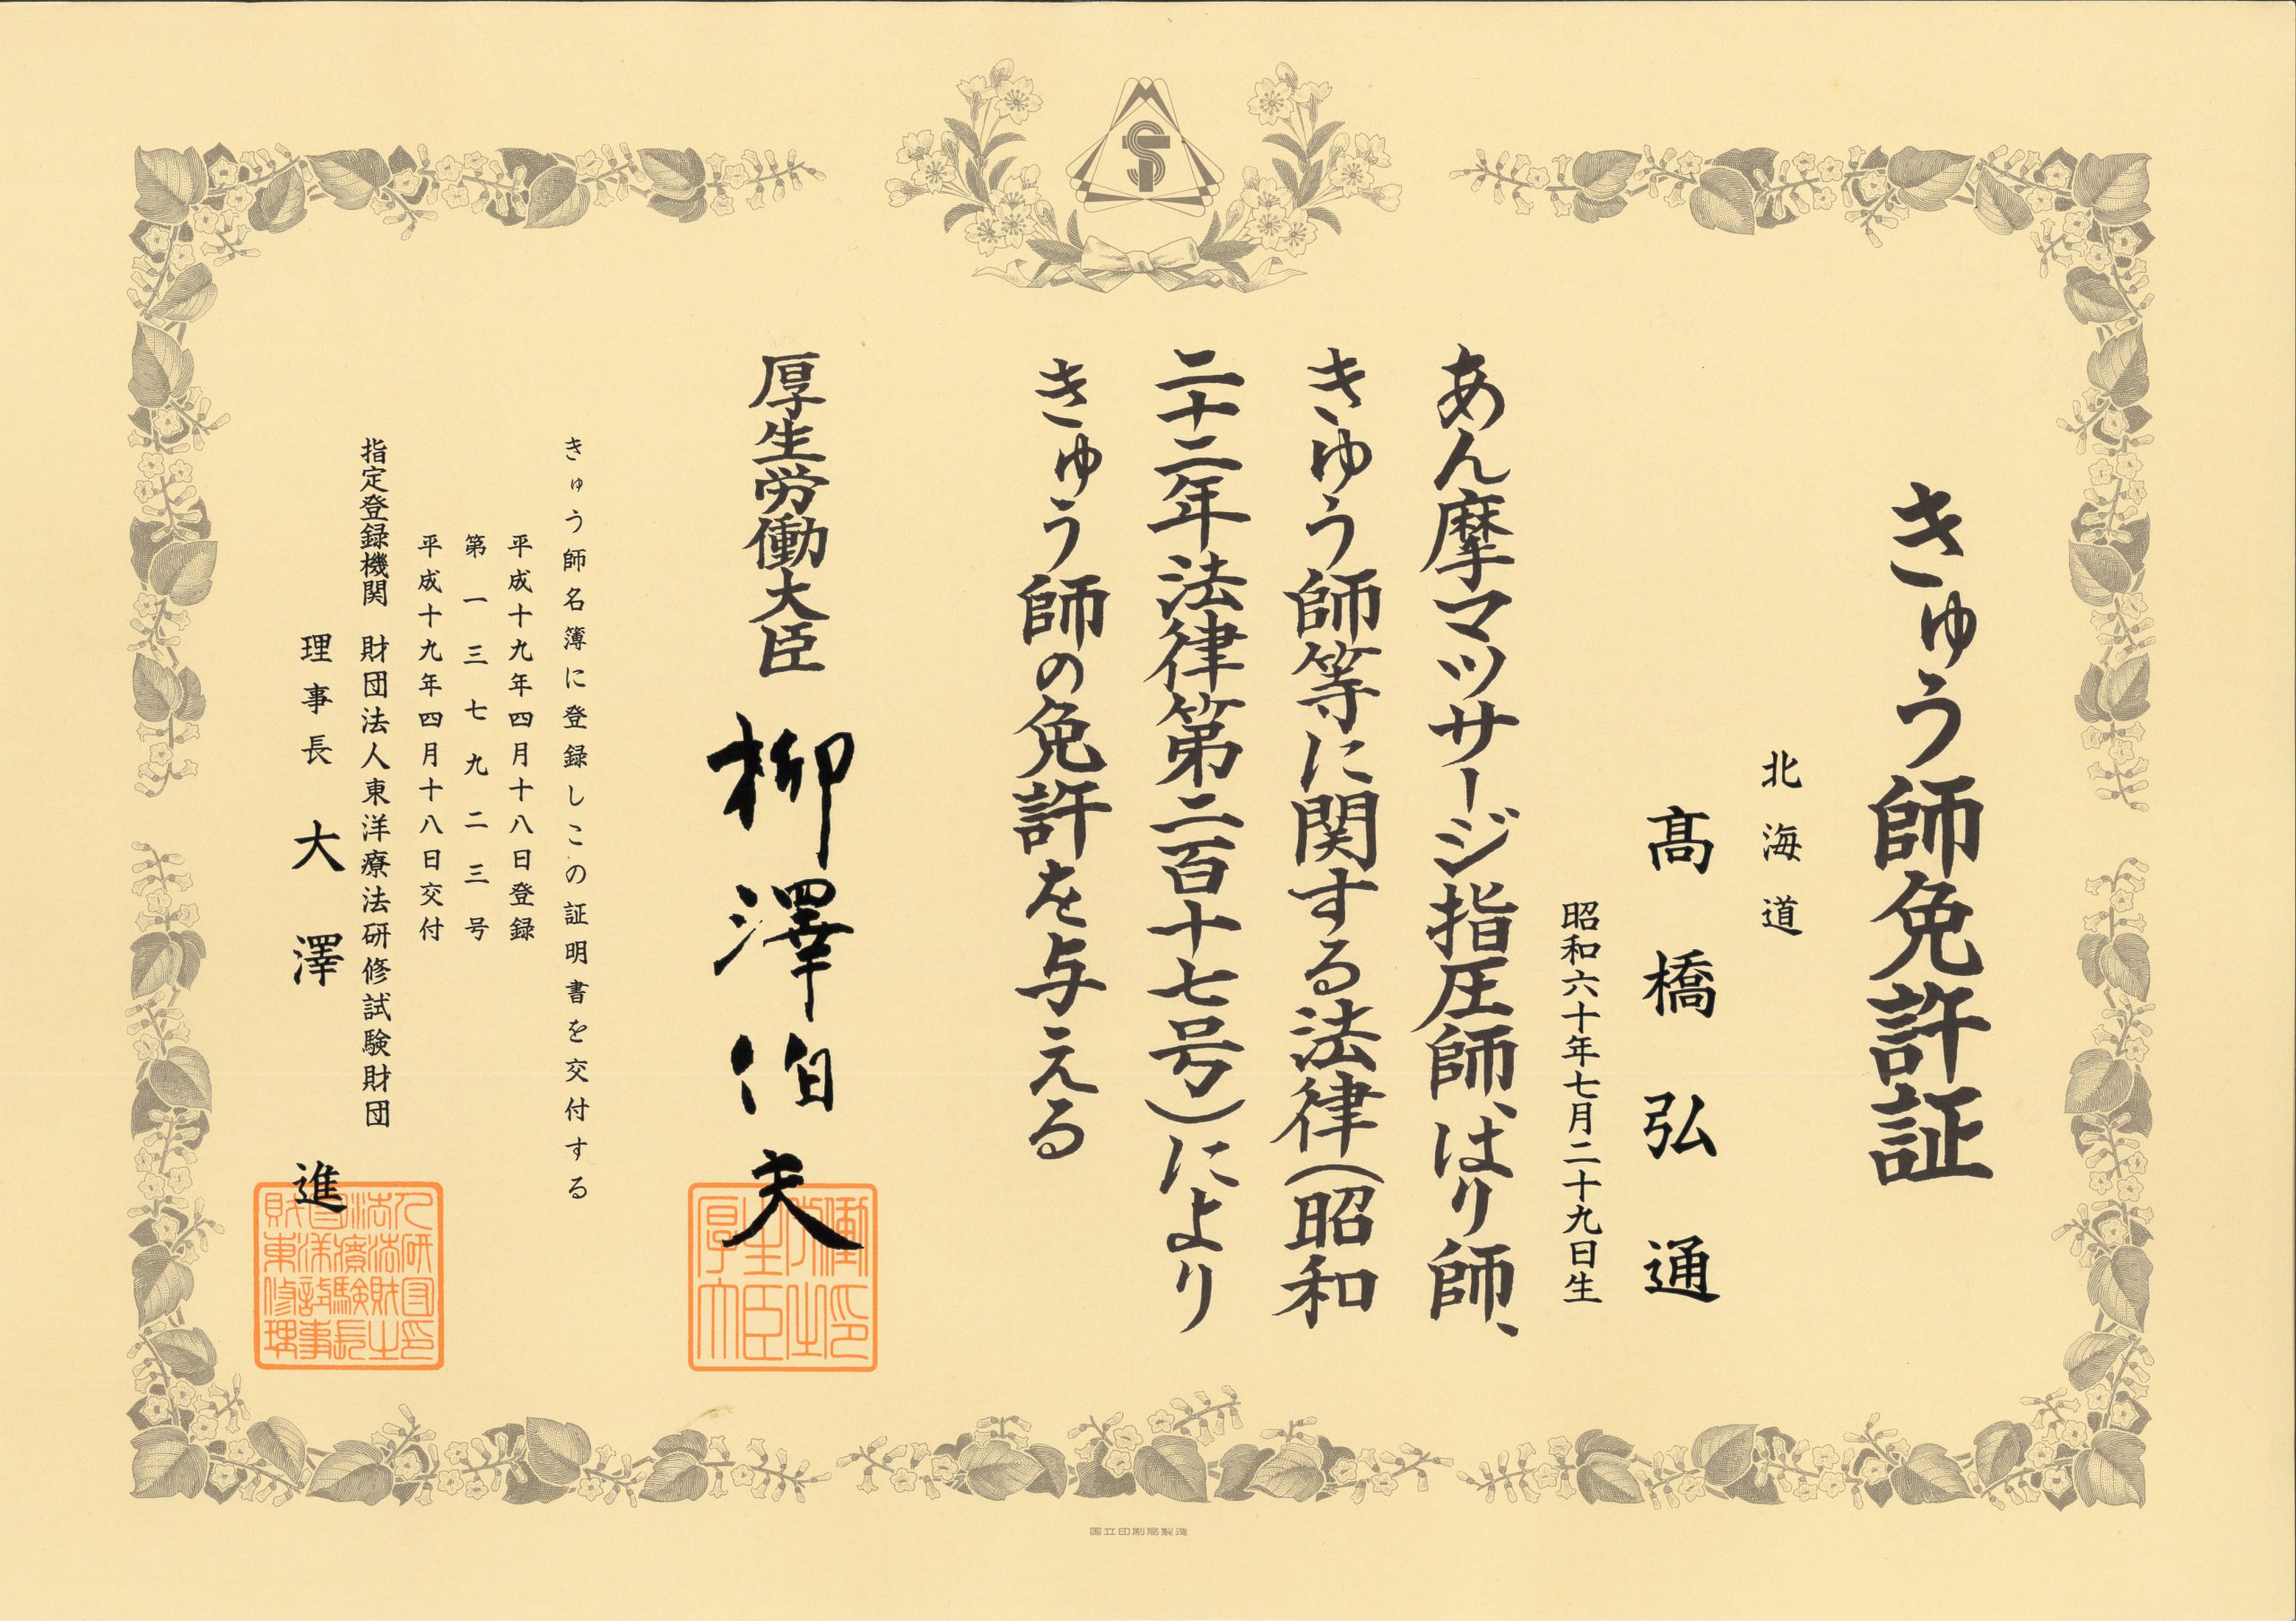 きゅう師免許証
北海道
髙橋弘通
昭和六十年七月二十九日生
あん摩マツサージ指圧師、はり師、
きゆう師等に関する法律(昭和
二十二年法律第二百十七号)により
きゅう師の免許を与える
厚生労働大臣 柳澤伯夫
きゅう師名簿に登録しこの証明書を交付する
平成十九年四月十八日登録
第一三七九二三号
平成十九年四月十八日交付
指定登録機関 財団法人東洋療法研修試験財団
理事長 大澤 進
国立印刷局製造